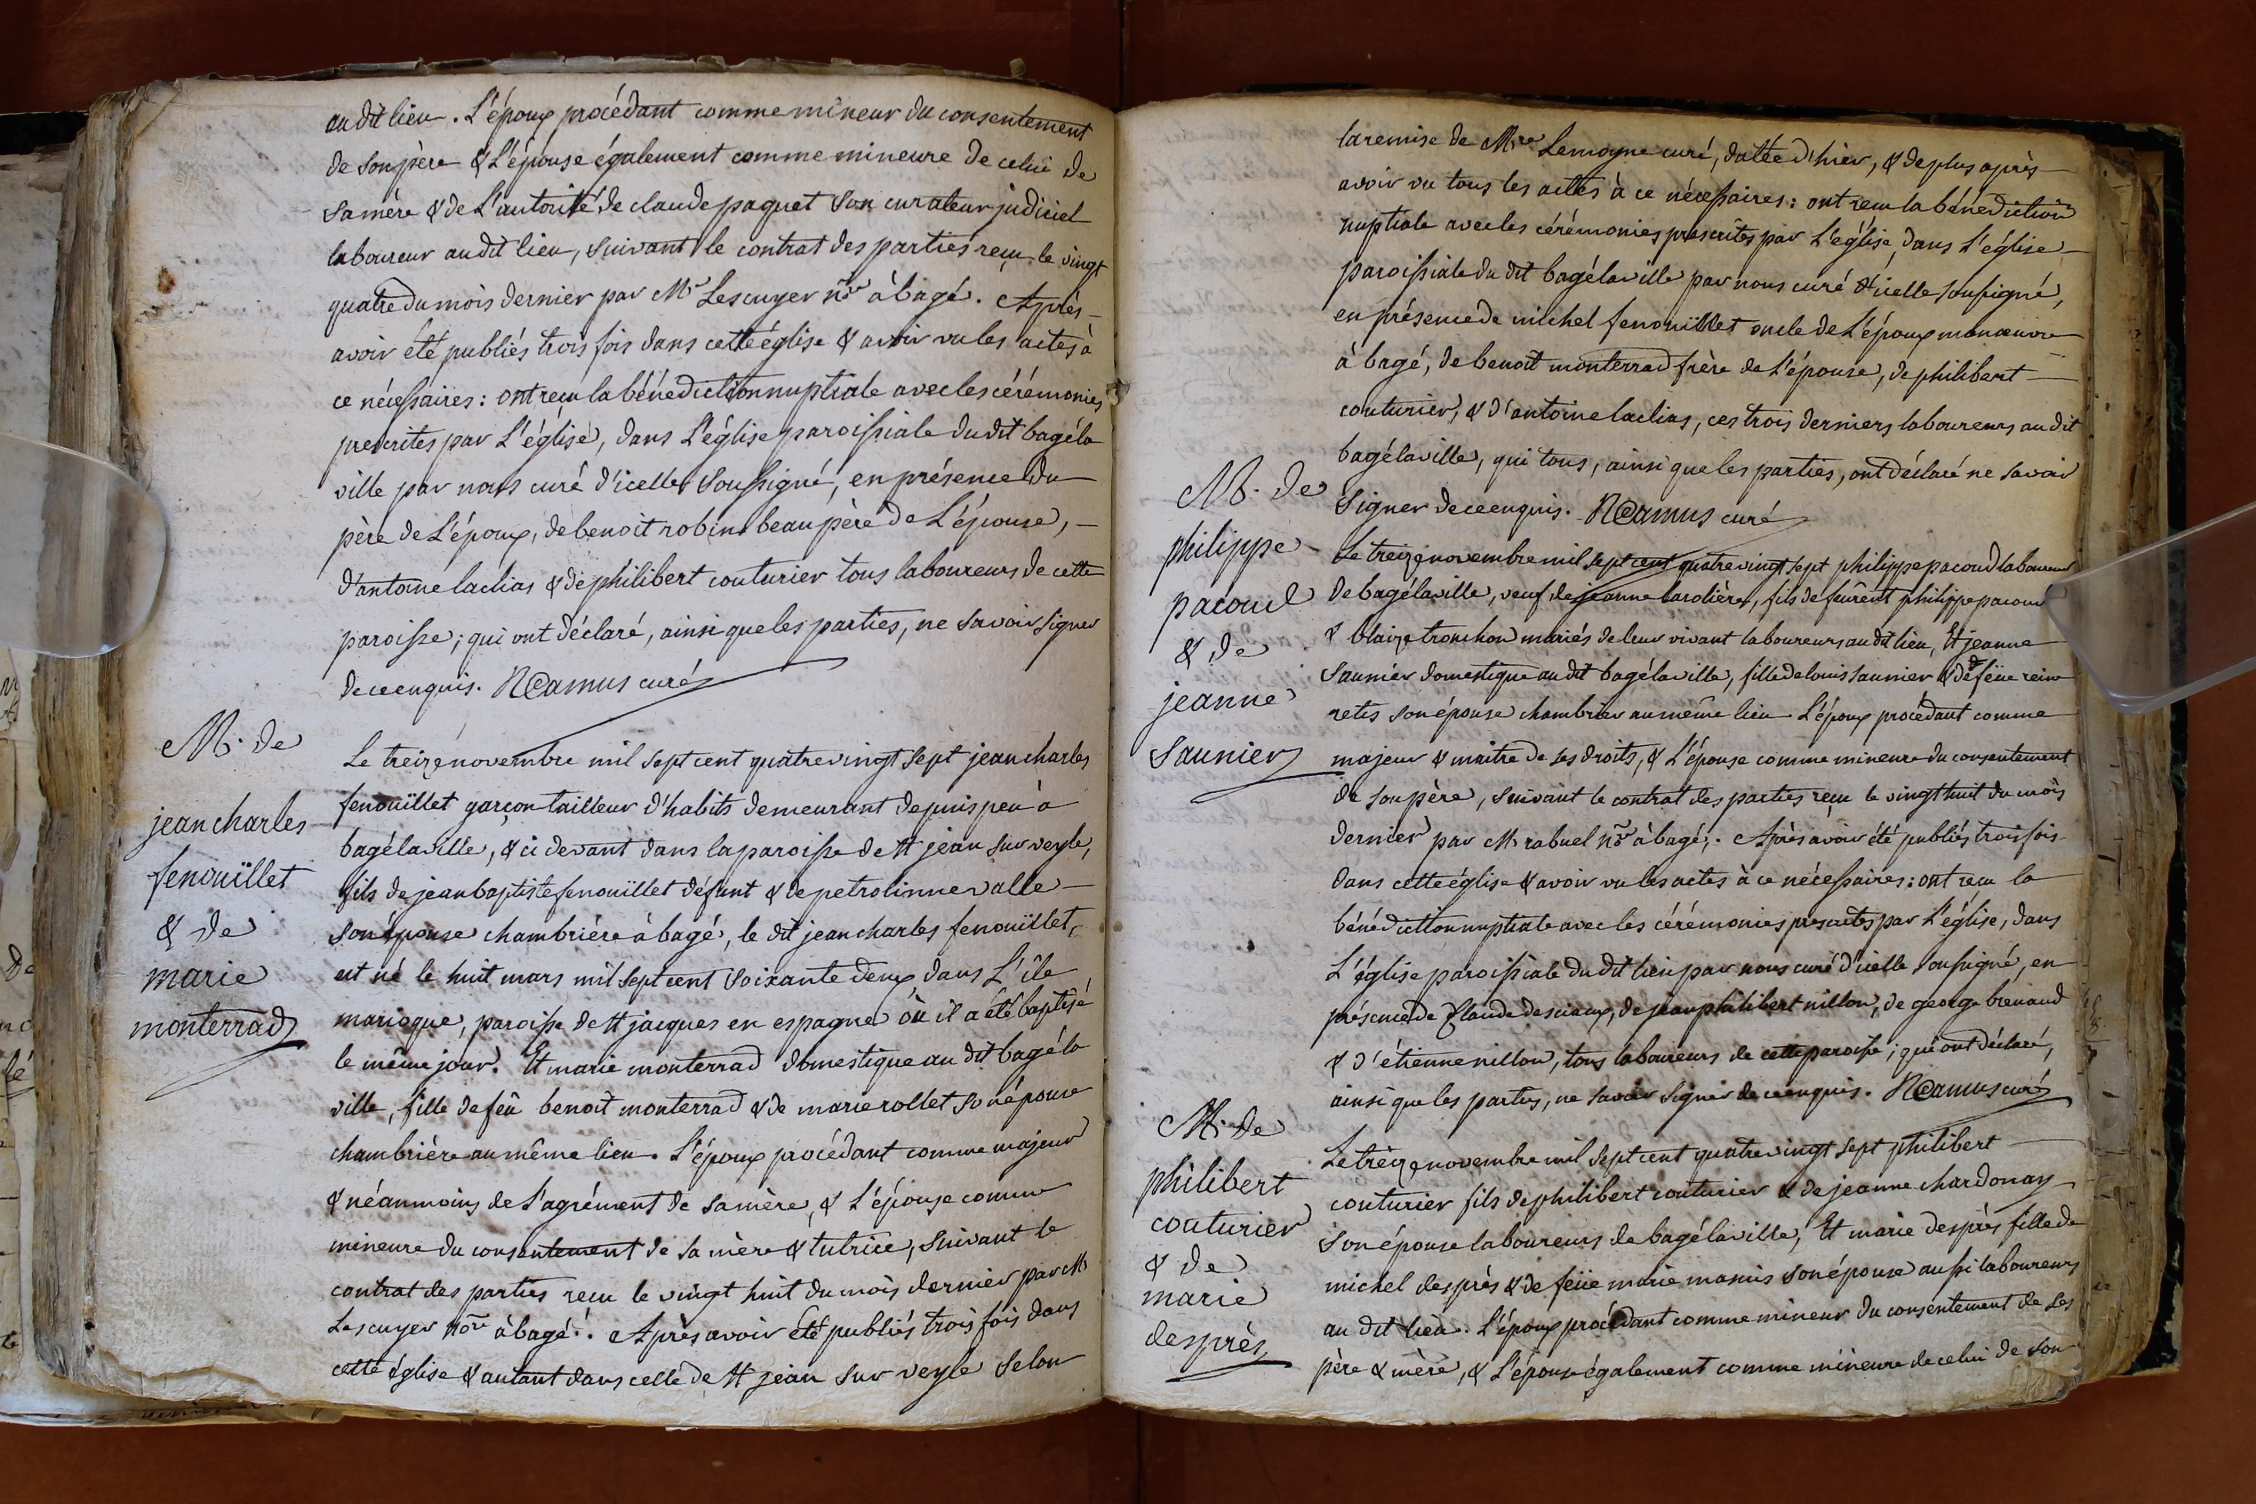 au dit lieu. L'époux procédant comme mineur du consentement
de son père & L'épouse également comme mineure de celui de
sa mère & de L'autorité de claude paquet son curateur judiciel
laboureur au dit lieu, suivant le contrat des parties reçu le vingt
quatre du mois dernier par Mr Lescuyer nre à bagé. Après
avoir été publiés trois fois dans cette église & avoir vu les actes à
ce nécessaires: ont reçu la bénédiction nuptiale avec les cérémonies
prescrites par L'église, dans L'église paroissiale du dit bagéla
ville par nous curé d'icelle soussigné, en présence du
père de L'époux, de benoit robin beau père de L'épouse,
d'antoine laclias & de philibert couturier tous laboureurs de cette
paroisse; qui ont déclaré, ainsi que les parties, ne savoir signer
de ce enquis. N@amus curé
M. de
jean charles
fenouïllet
& de
marie
monterrad
Le treize novembre mil sept cent quatre vingt sept jean charles
fenouïllet garçon tailleur d'habits demeurant depuis peu à
bagélaville, & ci devant dans la paroisse de St jean sur veyle,
fils de jean baptiste fenouïllet défunt & de petrolinne valle
son épouse chambrière à bagé, le dit jean charles fenouïllet
est né le huit mars mil sept cent soixante deux dans L'île
marioque, paroisse de St jacques en espagne où il a été baptisé
le même jour. Et marie monterrad domestique au dit bagéla
ville, fille de feû benoit monterrad & de marie rollet son épouse
chambrière au même lieu. L'époux procédant comme majeur
& néanmoins de L'agrément de sa mère, & L'épouse comme
mineure du consentement de sa mère & tutrice, suivant le
contrat des parties reçu le vingt huit du mois dernier par M.
Lescuyer nore à bagé. Après avoir été publiés trois fois dans
cette église & autant dans celle de St jean sur veyle selon
la remise de Mre Lemoyne curé, datte d'hier, & de plus après
avoir vu tous les actes à ce nécessaires: ont reçu la bénediction
nuptiale avec les cérémonies prescrites par L'église, dans L'église
paroissiale du dit bagélaville par nous curé d'icelle soussigné,
en présence de michel fenouïllet oncle de L'époux manœuvre
à bagé, de benoit monterrad frère de L'épouse, de philibert
couturier, & d'antoine laclias, ces trois derniers laboureurs au dit
bagélaville, qui tous, ainsi que les parties, ont déclaré ne savoir
signer de ce enquis. N@amus curé
M. de
philippe
pacoud
& de
jeanne
saunier
Le treize novembre mil sept cent quatre vingt sept philippe pacoud laboureur
de bagélaville, veuf de jeanne barolière, fils de feûrent philippe pacoud
& blaize tronchon mariés de leur vivant laboureurs au dit lieu, Et jeanne
saunier domestique au dit bagélaville, fille de louis saunier & de feüe reine
retis son épouse chambrier au même lieu L'époux procédant comme
majeur & maitre de ses droits, & L'épouse comme mineure du consentement
de son père, suivant le contrat des parties reçu le vingt huit du mois
dernier par M. rabuel nre à bagé. Après avoir été publiés trois fois
dans cette église & avoir vu les actes à ce nécessaires: ont reçu la
bénédiction nuptiale avec les cérémonies prescrites par L'église, dans
L'église paroissiale du dit lieu par nous curé d'icelle soussigné, en
présence de Claude desciaux, de jean philibert nillon, de george brevaud
& d'étienne nillon, tous laboureurs de cette paroisse; qui ont déclaré,
ainsi que les parties, ne savoir signer de ce enquis. N@amus curé
M. de
philibert
couturier
& de
marie
desprès
Le treize novembre mil sept cent quatre vingt sept philibert
couturier fils de philibert couturier & de jeanne chardonay
son épouse laboureurs de bagélaville, Et marie desprès fille de
michel desprès & de feüe marie mamis son épouse aussi laboureurs
au dit lieu. L'époux procédant comme mineur du consentement de ses
père & mère, & L'épouse également comme mineure de celui de son